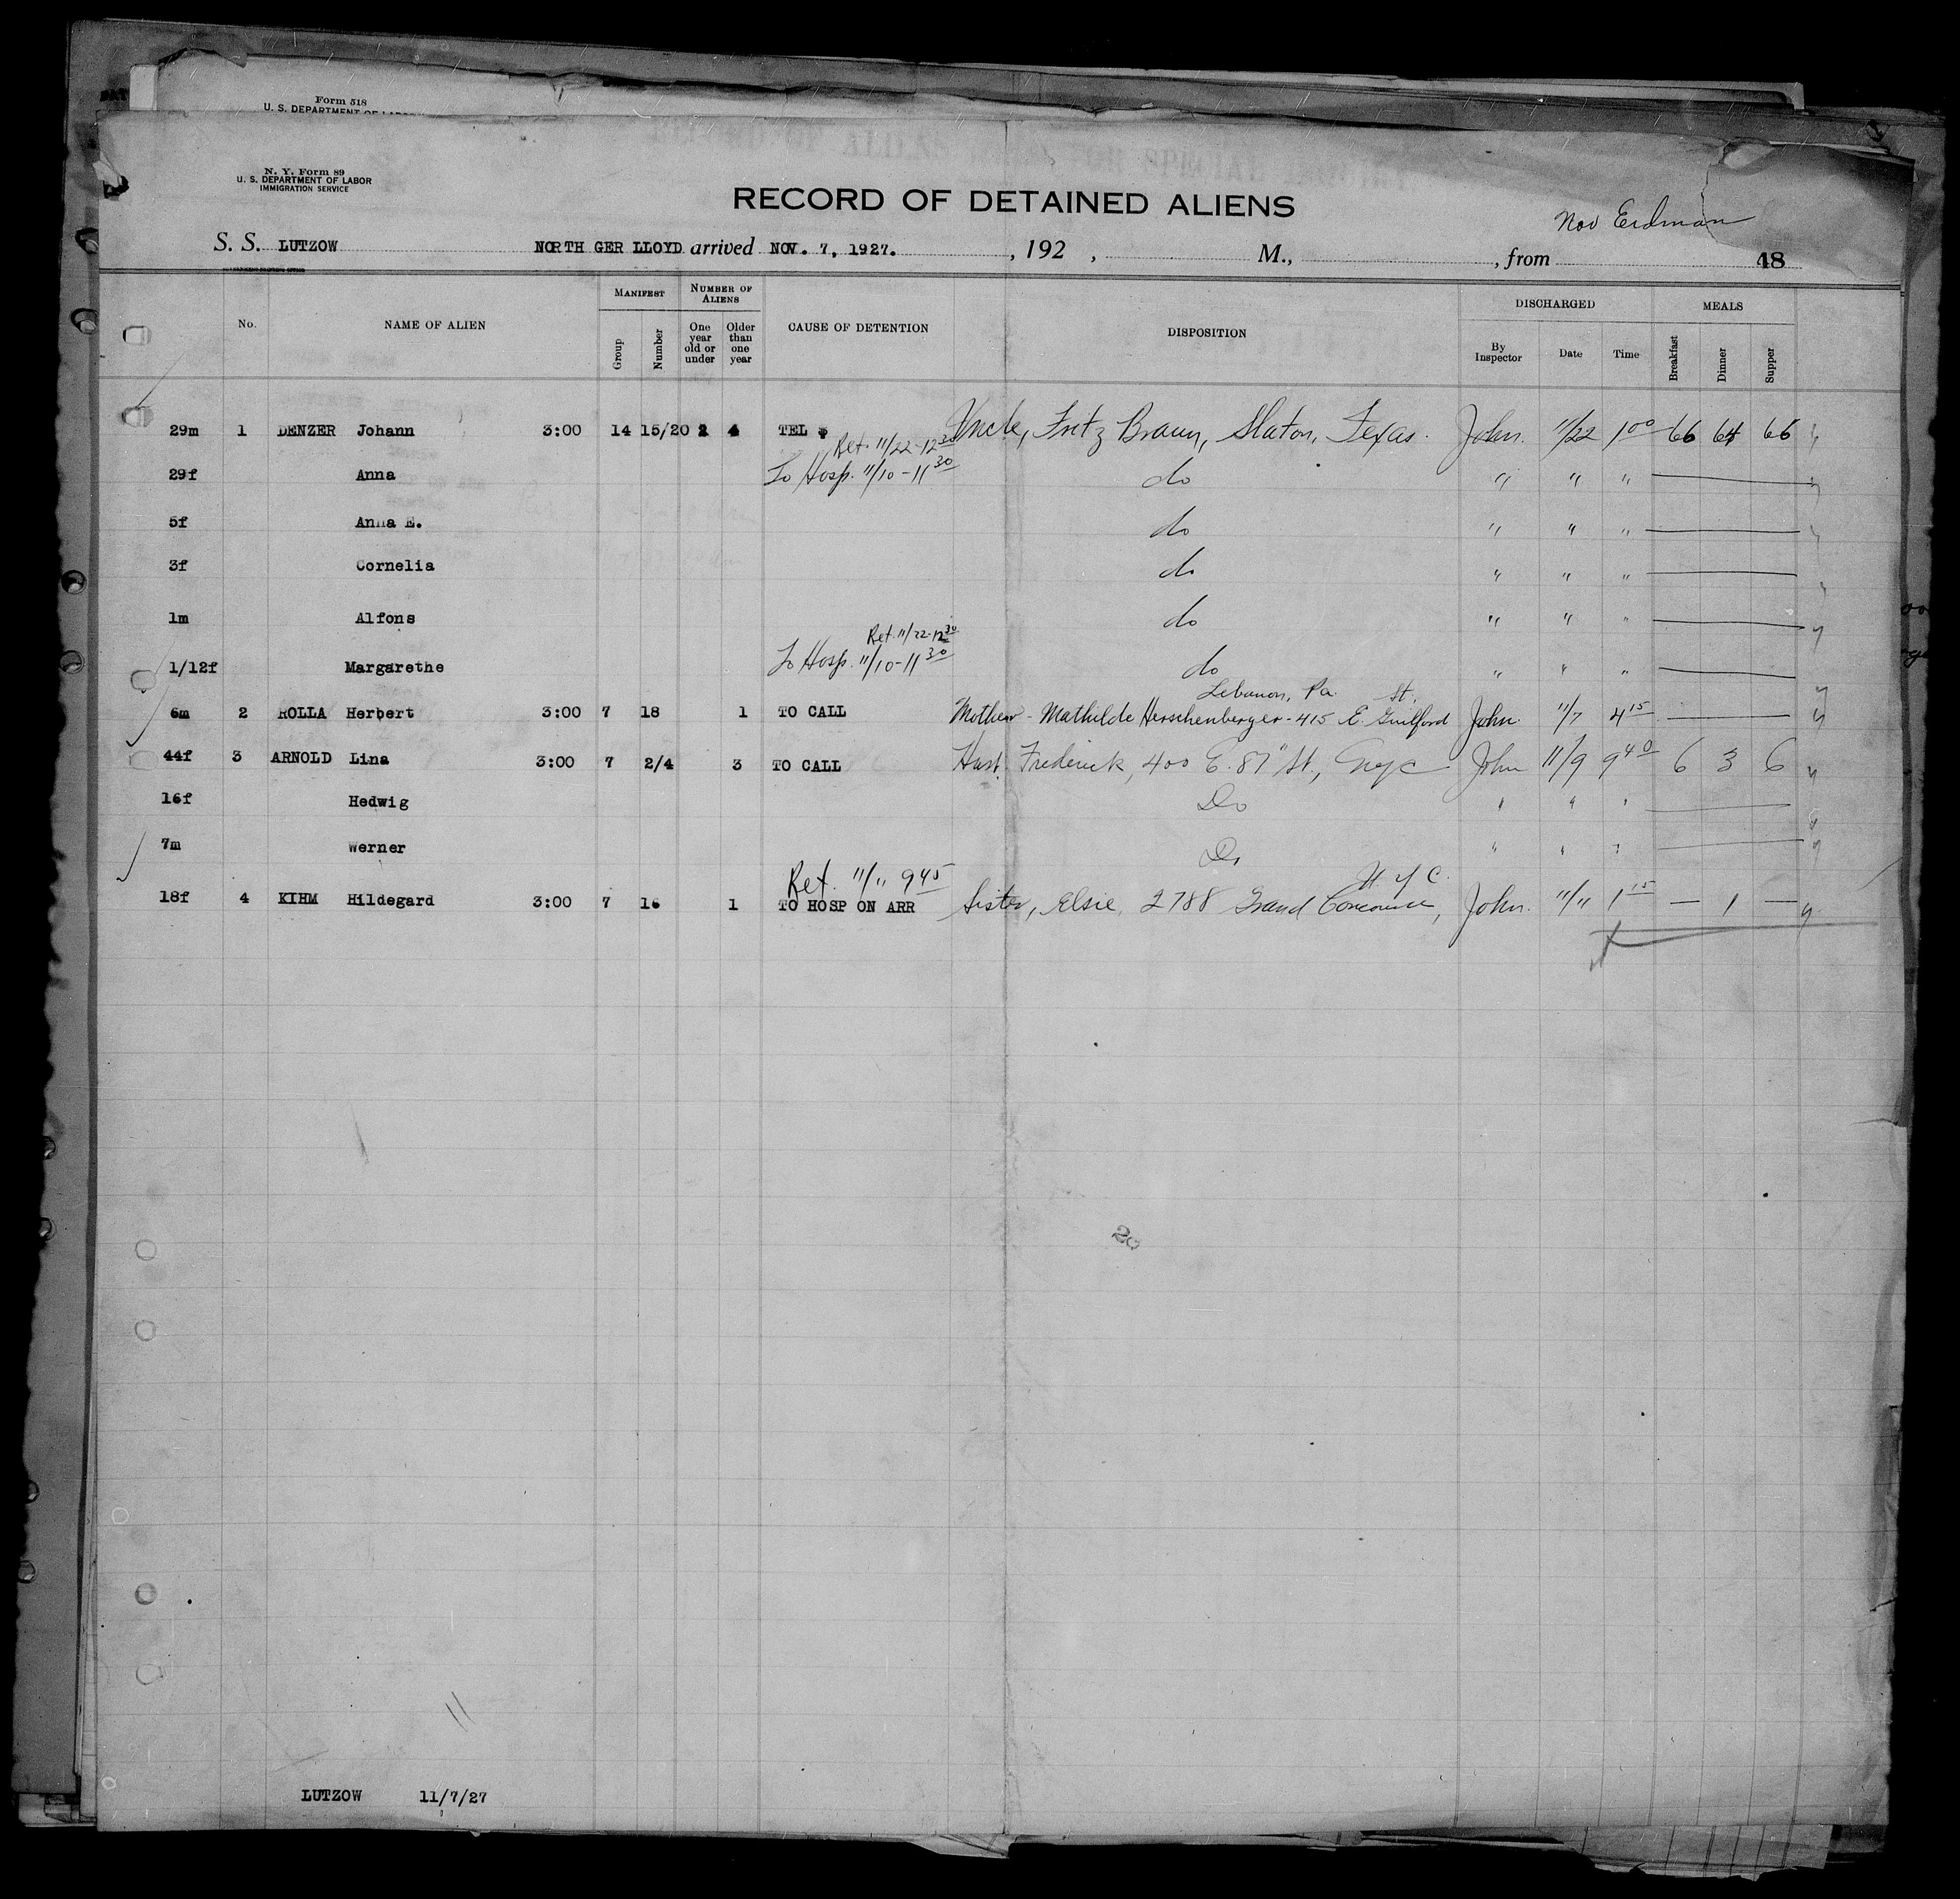 Form 518
U. S. DEPARTMENT OF LABOR
N. Y. Form 89
U. S. DEPARTMENT OF LABOR
IMMIGRATION SERVICE
RECORD OF DETAINED ALIENS
Nov Erdman
S. S. LUTZOW NORTH GER LLOYD arrived NOV. 7, 1927. , 192 , M., , from 48
No. NAME OF ALIEN MANIFEST Group Number NUMBER OF ALIENS One year old or under Older than one year CAUSE OF DETENTION DISPOSITION DISCHARGED By Inspector Date Time MEALS Breakfast Dinner Supper
29m 1 DENZER Johann 3:00 14 15/20 2 4 TEL $ Uncle, Fritz Braun, Slaton, Texas. John. 11/22 1 00 66 64 66
Ret. 11/22-12 30
29f Anna To Hosp. 11/10-11 30 do " " "
5f Anna E. do " " "
3f Cornelia do " " "
1m Alfons do " " "
Ret. 11/22-12 30
1/12f Margarethe To Hosp. 11/10-11 30 do " " "
Lebanon, Pa. St.
6m 2 ROLLA Herbert 3:00 7 18 1 TO CALL Mother - Mathilde Herschenberger-415 E. Guilford John. 11/7 4 15
44f 3 ARNOLD Lina 3:00 7 2/4 3 TO CALL Husb. Frederick, 400 E. 87" St., NYC John 11/9 9 40 6 3 6
16f Hedwig Do " " "
7m Werner Do " " "
Ret. 11/11 9 45 N Y C.
18f 4 KIHM Hildegard 3:00 7 16 1 TO HOSP ON ARR Sister, Elsie, 2788 Grand Concourse, John. 11/11 1 15 — 1 —
20
LUTZOW 11/7/27